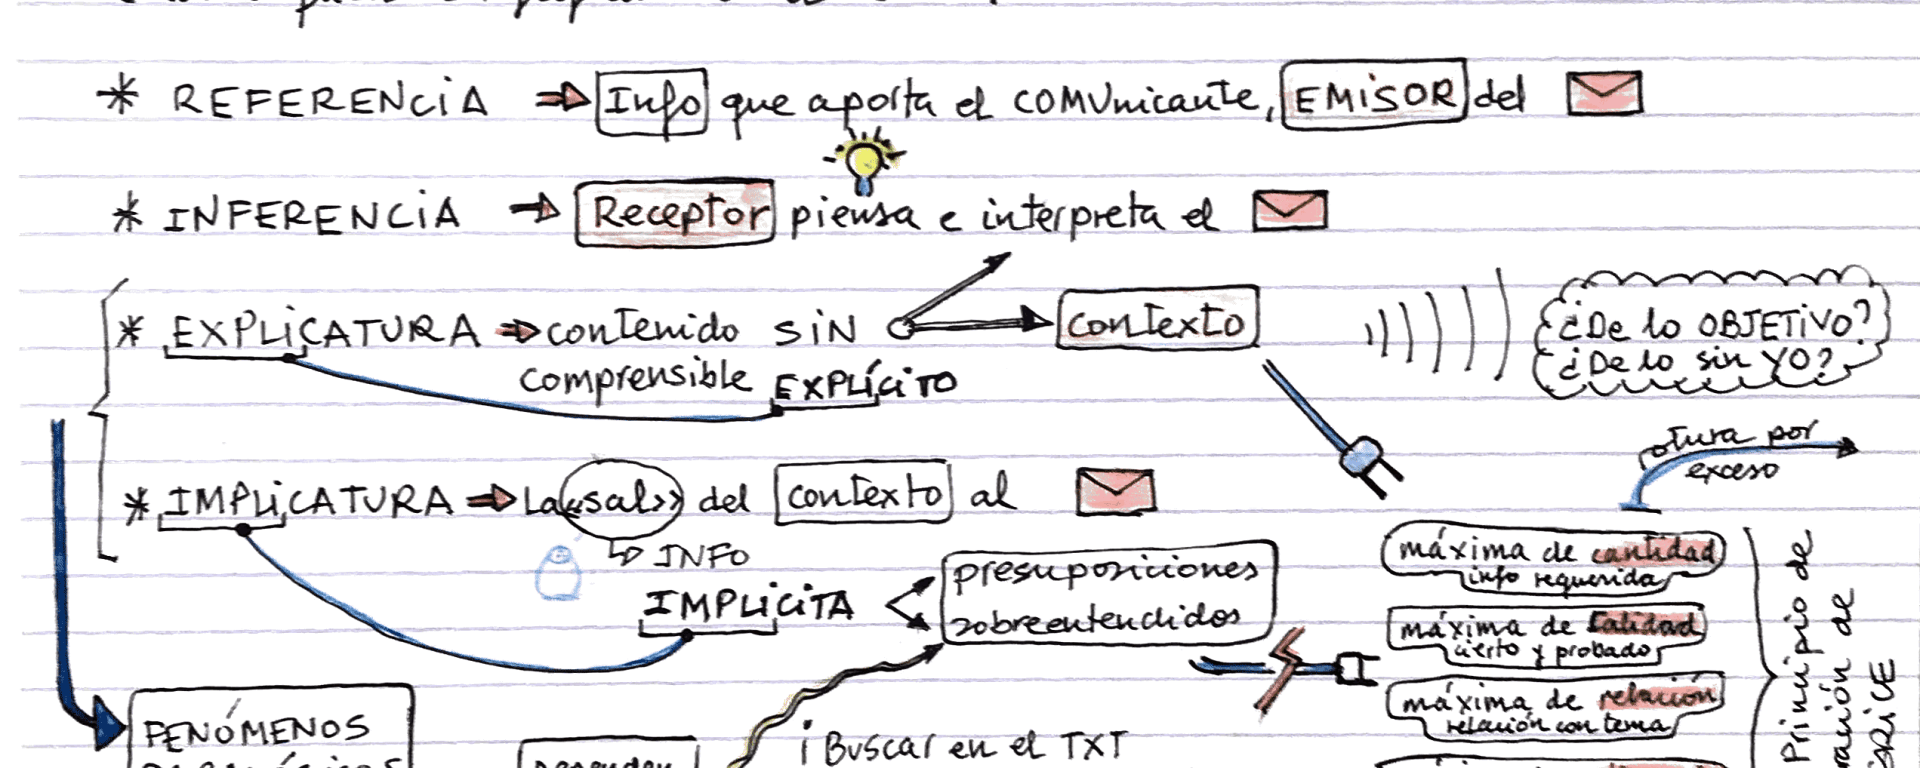 * REFERENCIA ⇒ Info que aporta el COMUnicante, EMISOR del
* INFERENCIA ⇒ Receptor piensa e interpreta el
* EXPLICATURA ⇒ contenido SIN contexto
comprensible EXPLÍCITO
¿De lo OBJETIVO?
¿De lo sin YO?
otura por
exceso
* IMPLICATURA ⇒ La «sal» del contexto al
↳ INFO
IMPLICITA
presuposiciones
sobreentendidos
máxima de cantidad
info requerida
máxima de calidad
cierto y probado
máxima de relación
relación con tema
Principio de
de
GRICE
FENÓMENOS
¡Buscar en el TXT